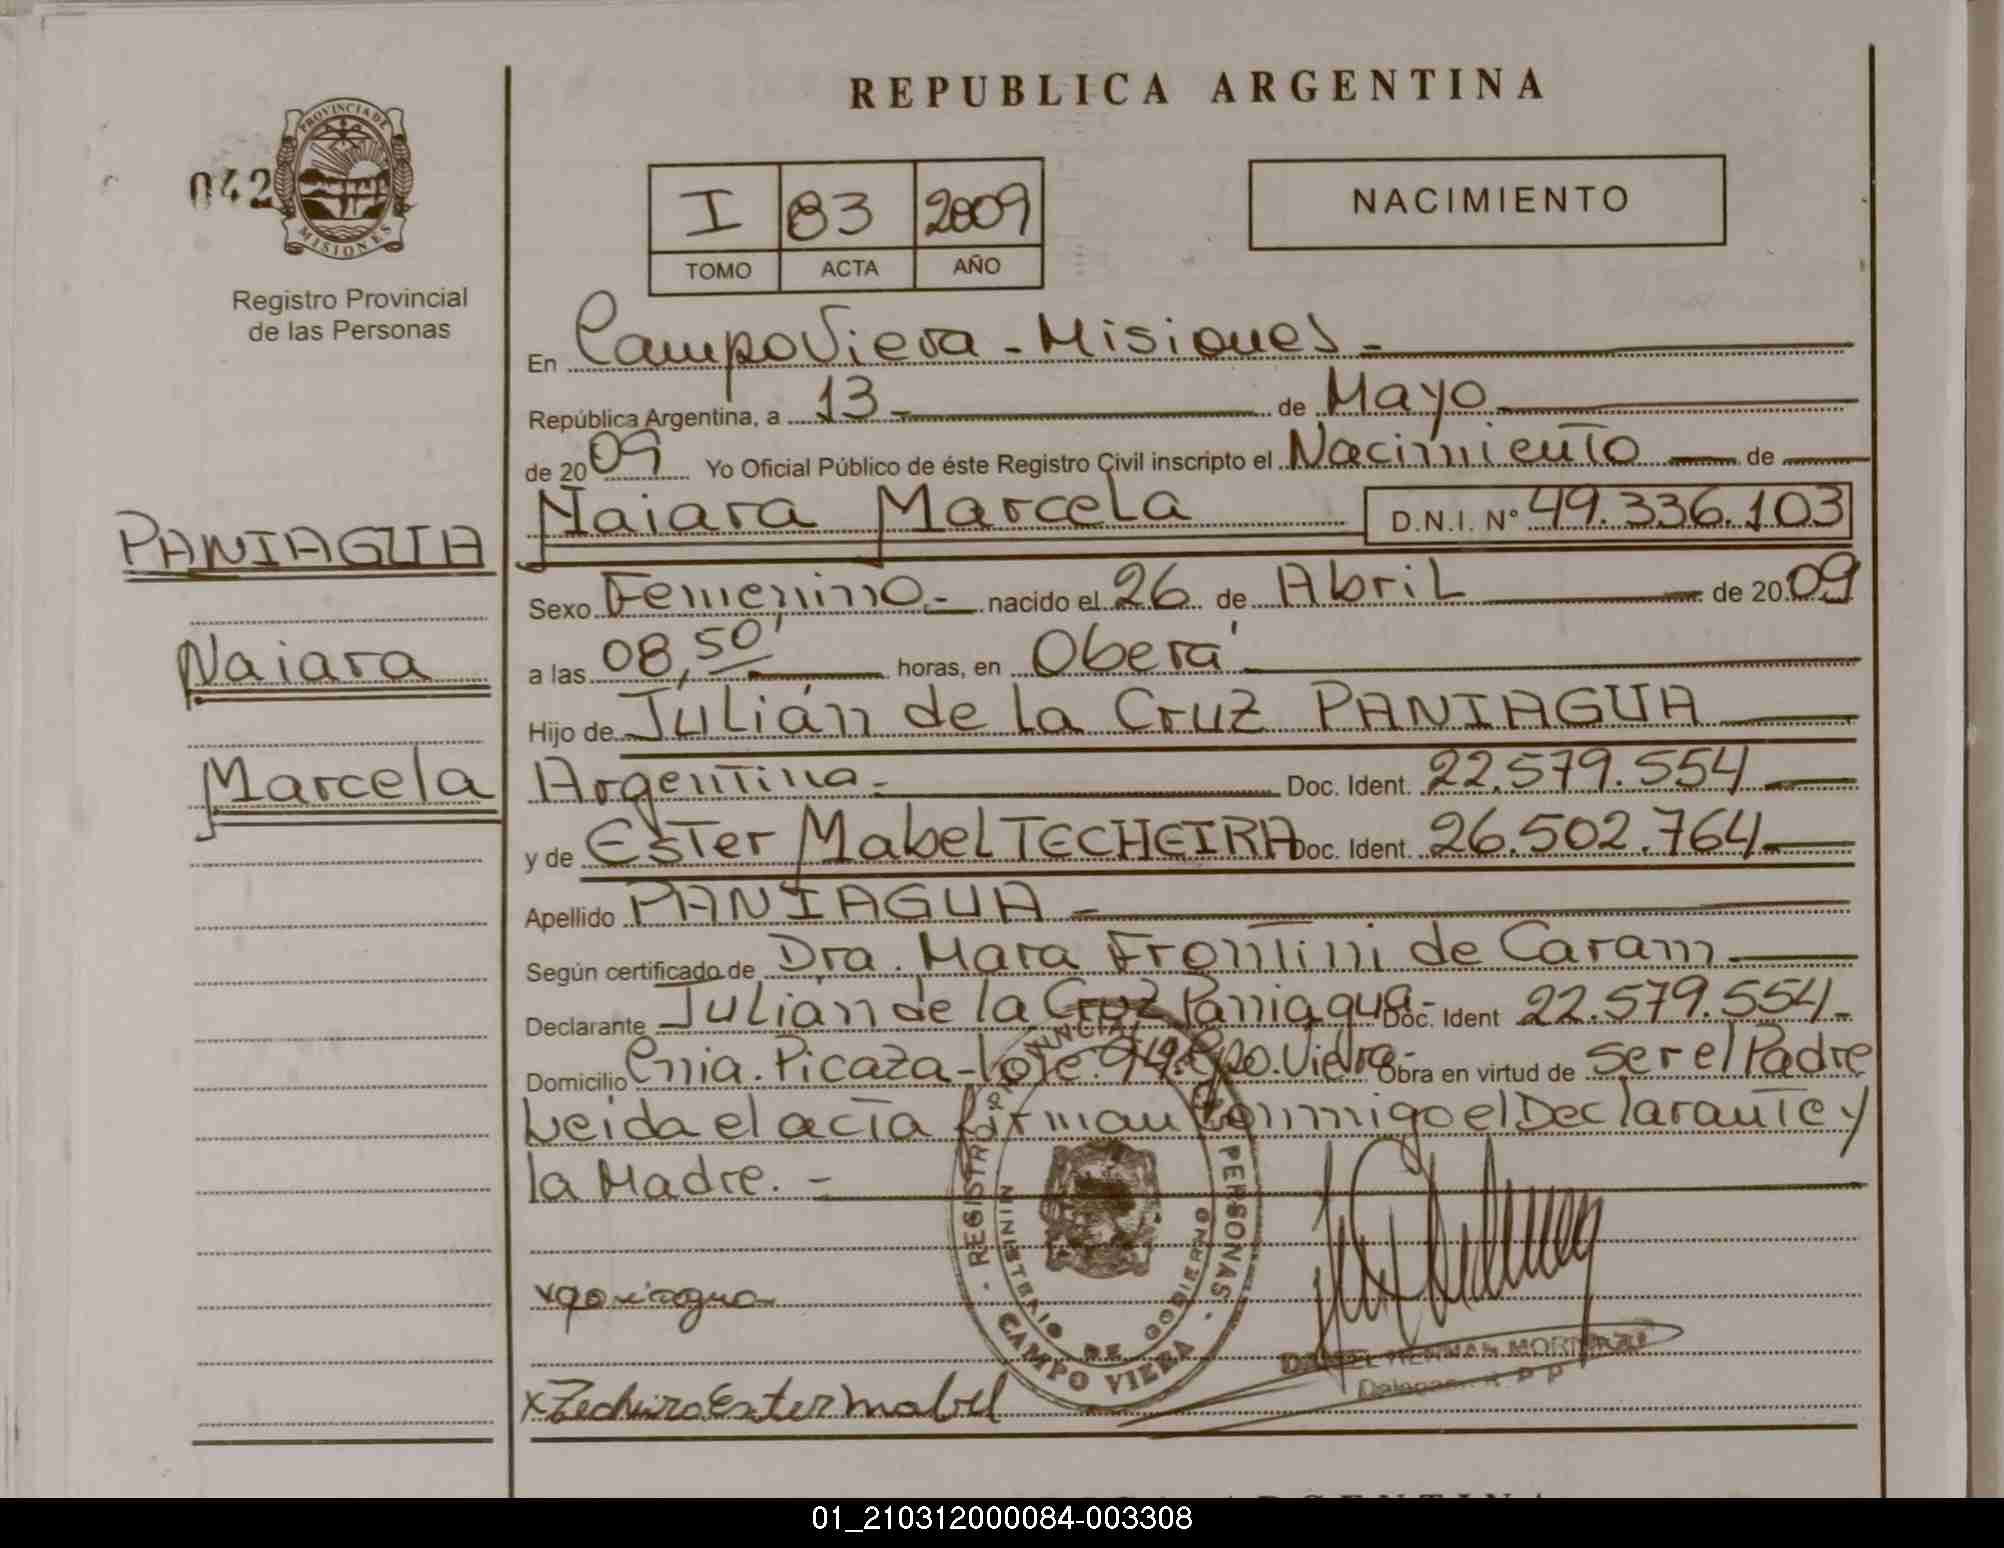 REPUBLICA ARGENTINA
042
PROVINCIA DE
MISIONES
Registro Provincial
de las Personas
I 83 2009
TOMO ACTA AÑO
NACIMIENTO
En Campo Viera - Misiones -
República Argentina, a 13 - de Mayo
de 2009 Yo Oficial Público de éste Registro Civil inscripto el Nacimiento de
Naiara Marcela D.N.I. N° 49.336.103
PANIAGUA
Naiara
Marcela
Sexo Femenino.- nacido el 26 de Abril de 2009
a las 08,50' horas, en Oberá
Hijo de Julián de la Cruz PANIAGUA
Argentina - Doc. Ident. 22.579.554
y de Ester Mabel TECHEIRA Doc. Ident. 26.502.764
Apellido PANIAGUA -
Según certificado de Dra. Mara Frontini de Caram
Declarante Julián de la Cruz Paniagua - Doc. Ident 22.579.554
Domicilio Cnia. Picaza - Lote. 94. Cpo. Viera - Obra en virtud de ser el Padre
Leida el acta firman conmigo el Declarante y
la Madre. -
REGISTRO PROVINCIAL PERSONAS
MINISTERIO DE GOBIERNO
CAMPO VIERA
x paniagua
x Techeira Ester mabel
01_210312000084-003308